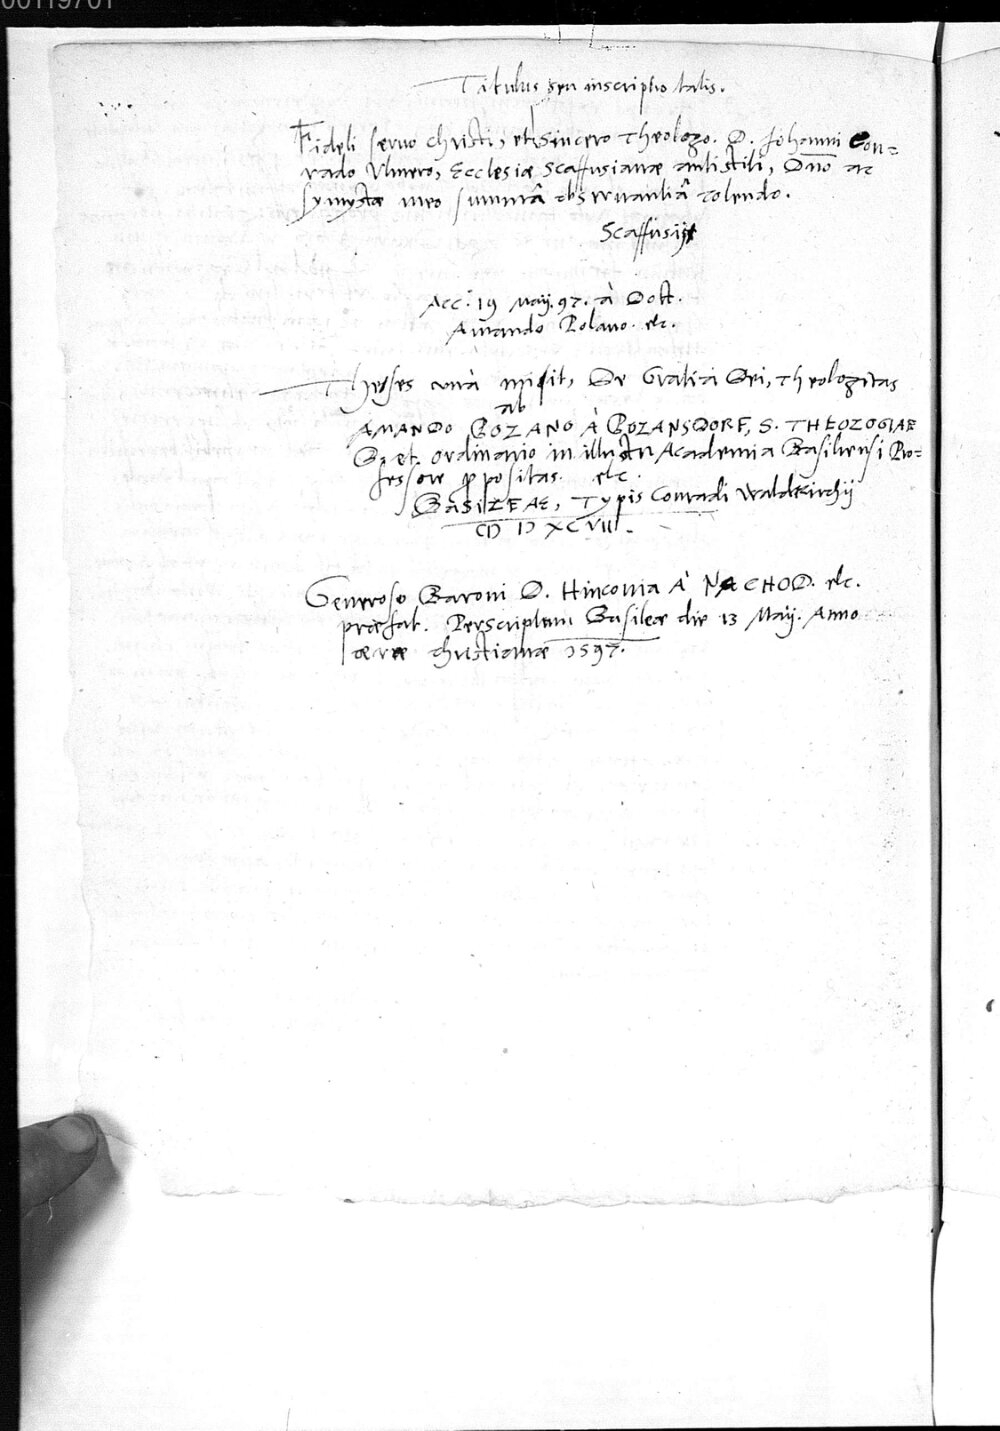 00119701
Titulus seu inscriptio talis.
Fideli servo Christi, et sincero Theologo. D. Johanni Con=
rado Ulmero, Ecclesiæ Scaffusianæ antistiti, Dno ac
symystæ meo summâ observantiâ colendo.
Scaffusij
Acc. 19 Maij. 97. à Doct.
Amando Polano. etc.
Theses unà misit, De Gratia Dei, Theologicas
ab
AMANDO POLANO À POLANSDORF, S. THEOLOGIAE
D. et ordinario in illustri Academia Basiliensi Pro=
fessore propositas. etc.
BASILEAE, Typis Conradi Waldkirchij
CIƆ IƆ XCVII.
Generoso Baroni D. Hinconia À NACHOD. etc.
præfat. Perscriptam Basileæ die 13 Maij. Anno
æræ christianæ 1597.